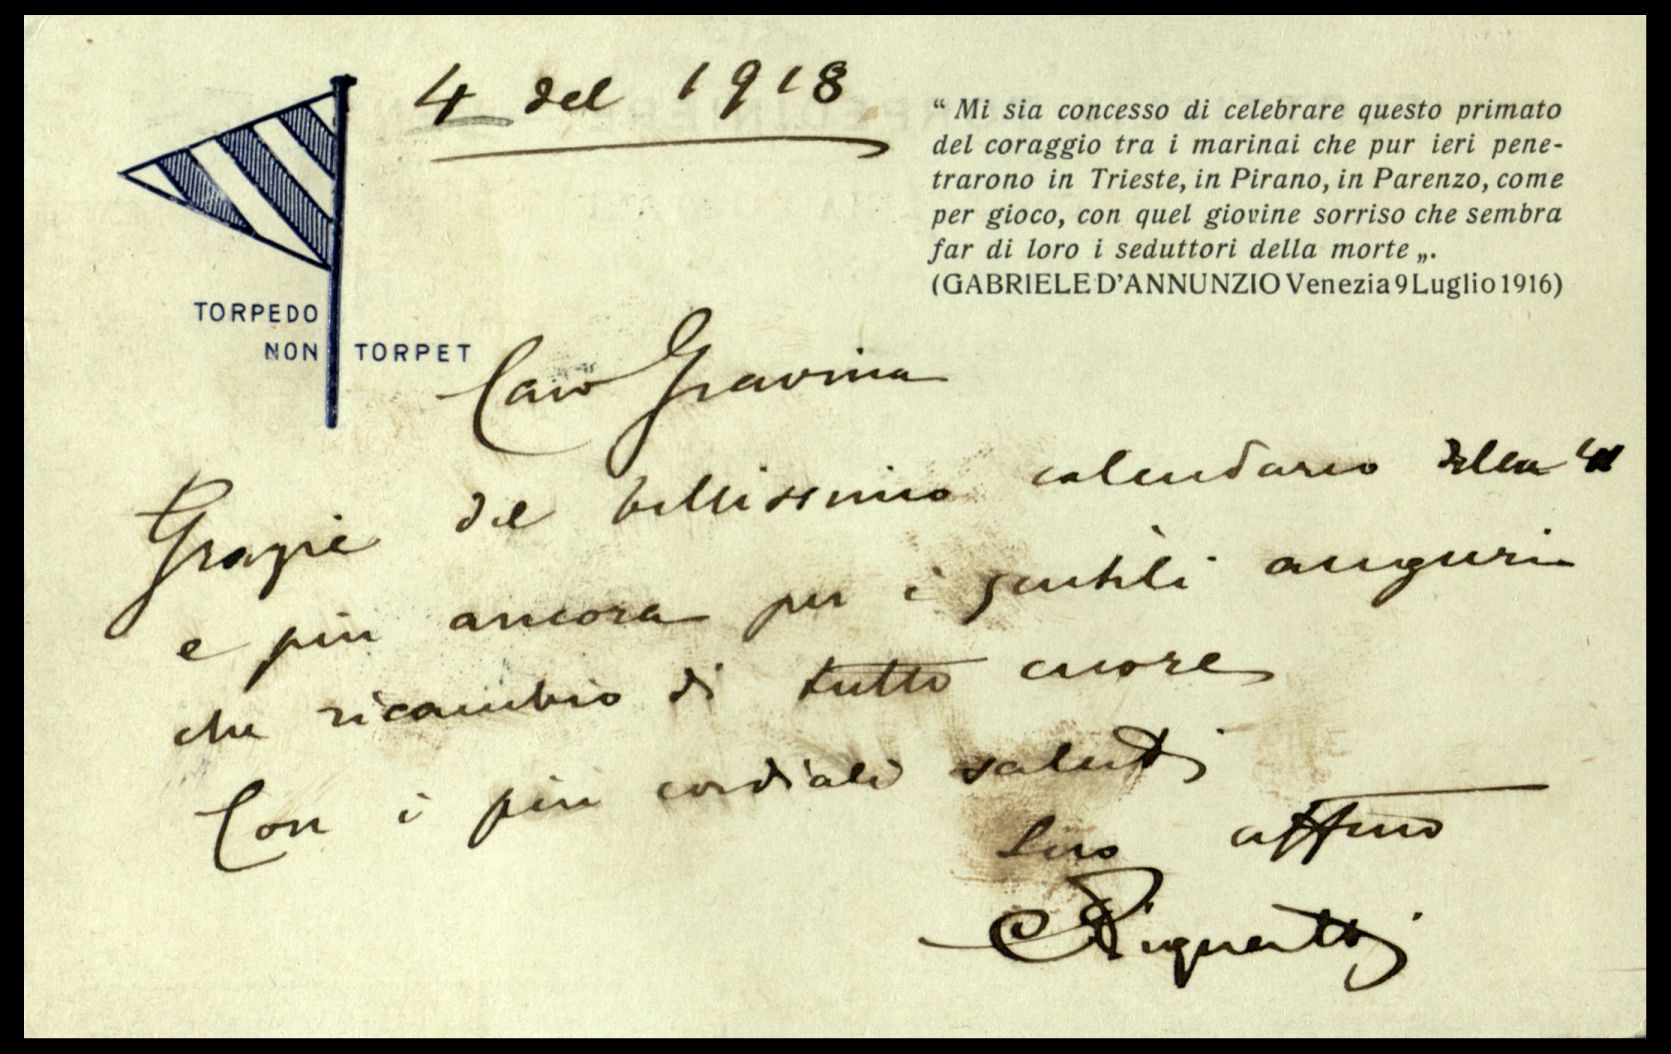 4 del 1918
“ Mi sia concesso di celebrare questo primato
del coraggio tra i marinai che pur ieri pene-
trarono in Trieste, in Pirano, in Parenzo, come
per gioco, con quel giovine sorriso che sembra
far di loro i seduttori della morte „.
(GABRIELE D’ANNUNZIO Venezia 9 Luglio 1916)
TORPEDO
NON TORPET
Caro Gravina
Grazie del bellissimo calendario della 4ª
e più ancora per i gentili auguri
che ricambio di tutto cuore
Con i più cordiali saluti
Suo affmo